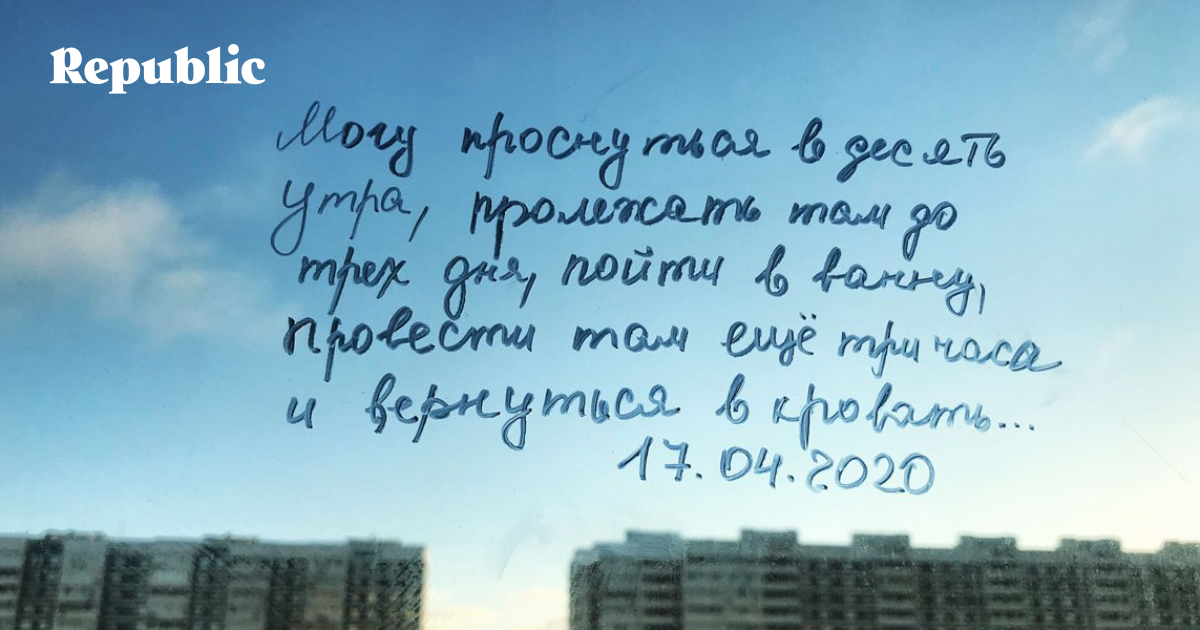 Republic
Могу проснуться в десять
утра, пролежать там до
трех дня, пойти в ванну,
провести там ещё три часа
и вернуться в кровать...
17.04.2020